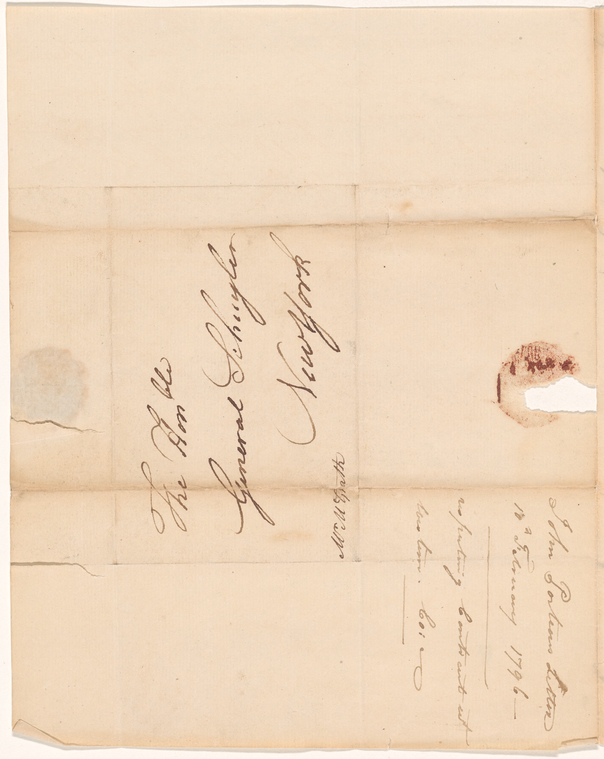 The Hon.ble
General Schuyler
New York
Mr
John Porteous Letter
February 1796
respecting Contract at